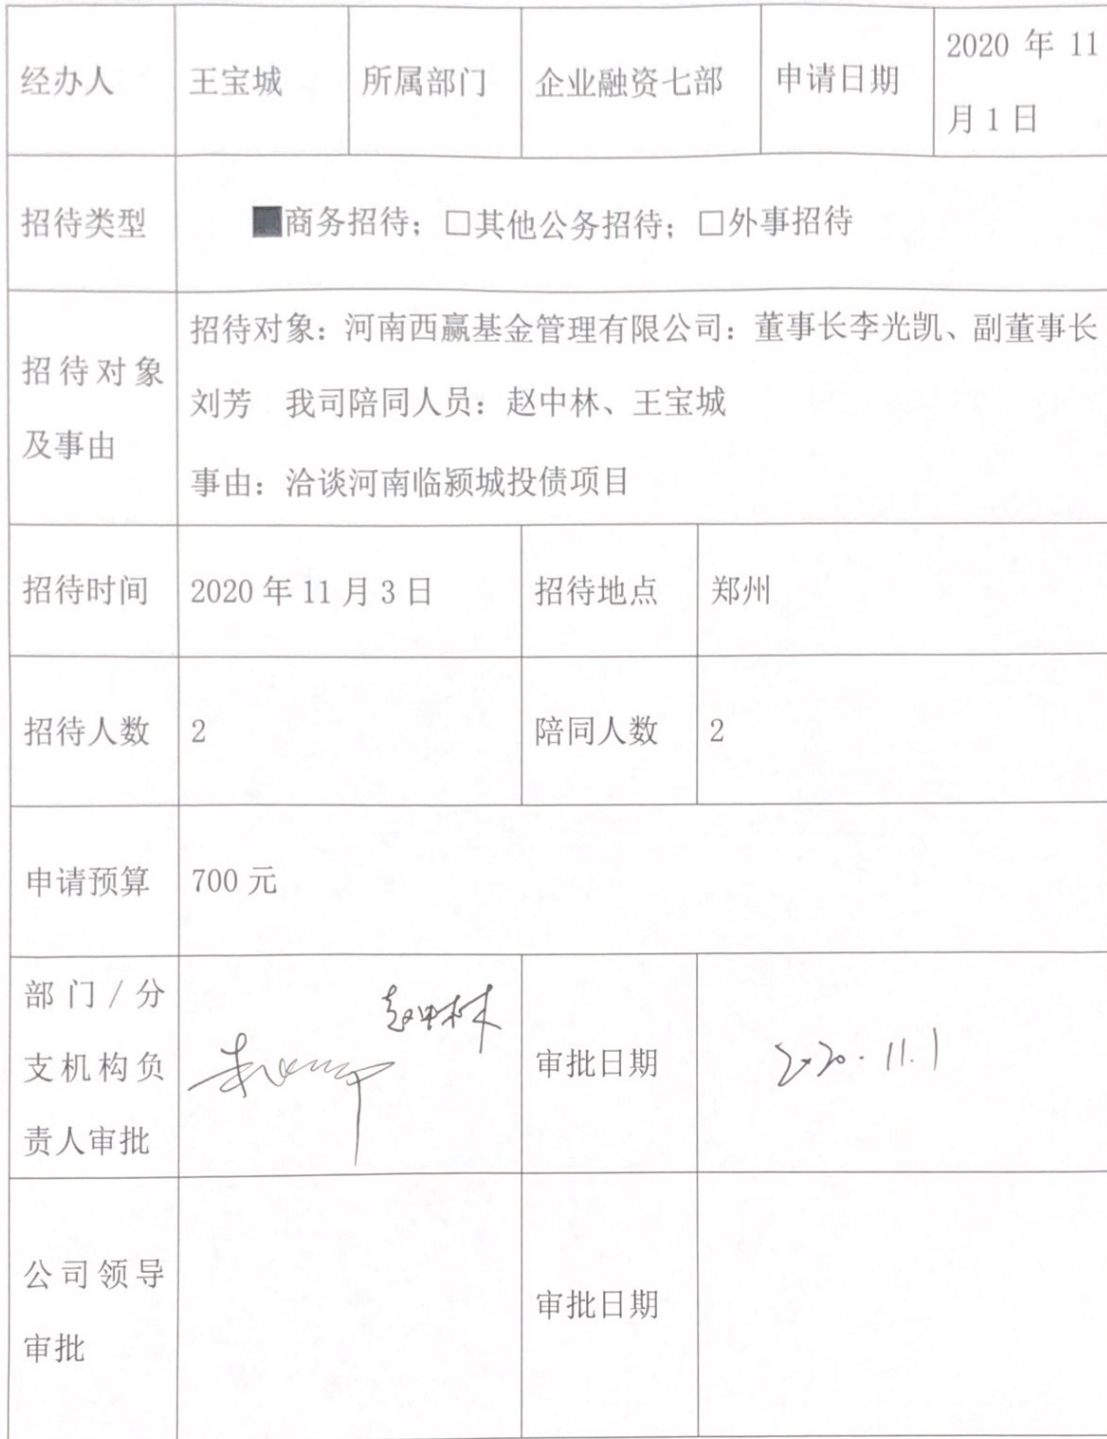 经办人 王宝城 所属部门 企业融资七部 申请日期 2020 年 11
月 1 日
招待类型 ■商务招待；□其他公务招待；□外事招待
招待对象
及事由
招待对象：河南西赢基金管理有限公司：董事长李光凯、副董事长
刘芳 我司陪同人员：赵中林、王宝城
事由：洽谈河南临颍城投债项目
招待时间 2020 年 11 月 3 日 招待地点 郑州
招待人数 2 陪同人数 2
申请预算 700 元
部门/分
支机构负
责人审批
赵中林
审批日期 2020.11.1
公司领导
审批
审批日期